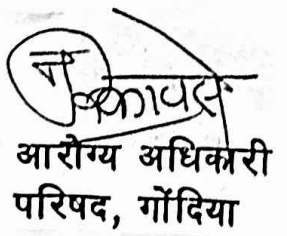 आरोग्य अधिकारी
परिषद, गोंदिया